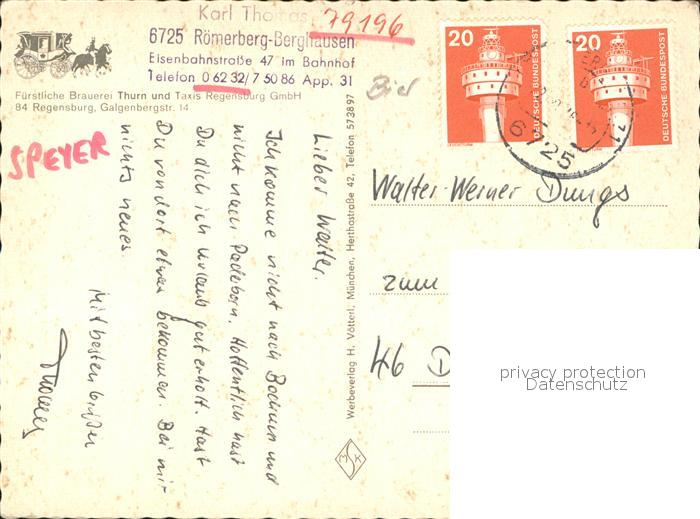 Karl Thomas
79196
6725 Römerberg-Berghausen
Eisenbahnstraße 47 im Bahnhof
Telefon 0 62 32/7 50 86 App. 31
Fürstliche Brauerei Thurn und Taxis Regensburg GmbH
84 Regensburg, Galgenbergstr. 14
SPEYER
Bier
Lieber Walter.
Ich komme nicht nach Bochum und
nicht nach Padeborn. Hoffentlich hast
Du dich ich Urlaub gut erholt. Hast
Du von dort etwas bekommen. Bei mir
nichts neues.
Mit besten Grüßen
Thomas
Werbeverlag H. Vötterl, München, Herthastraße 42, Telefon 573897
MSK
20
DEUTSCHE BUNDESPOST
20
DEUTSCHE BUNDESPOST
6725
Walter-Werner Dungs
zum
46 D
privacy protection
Datenschutz